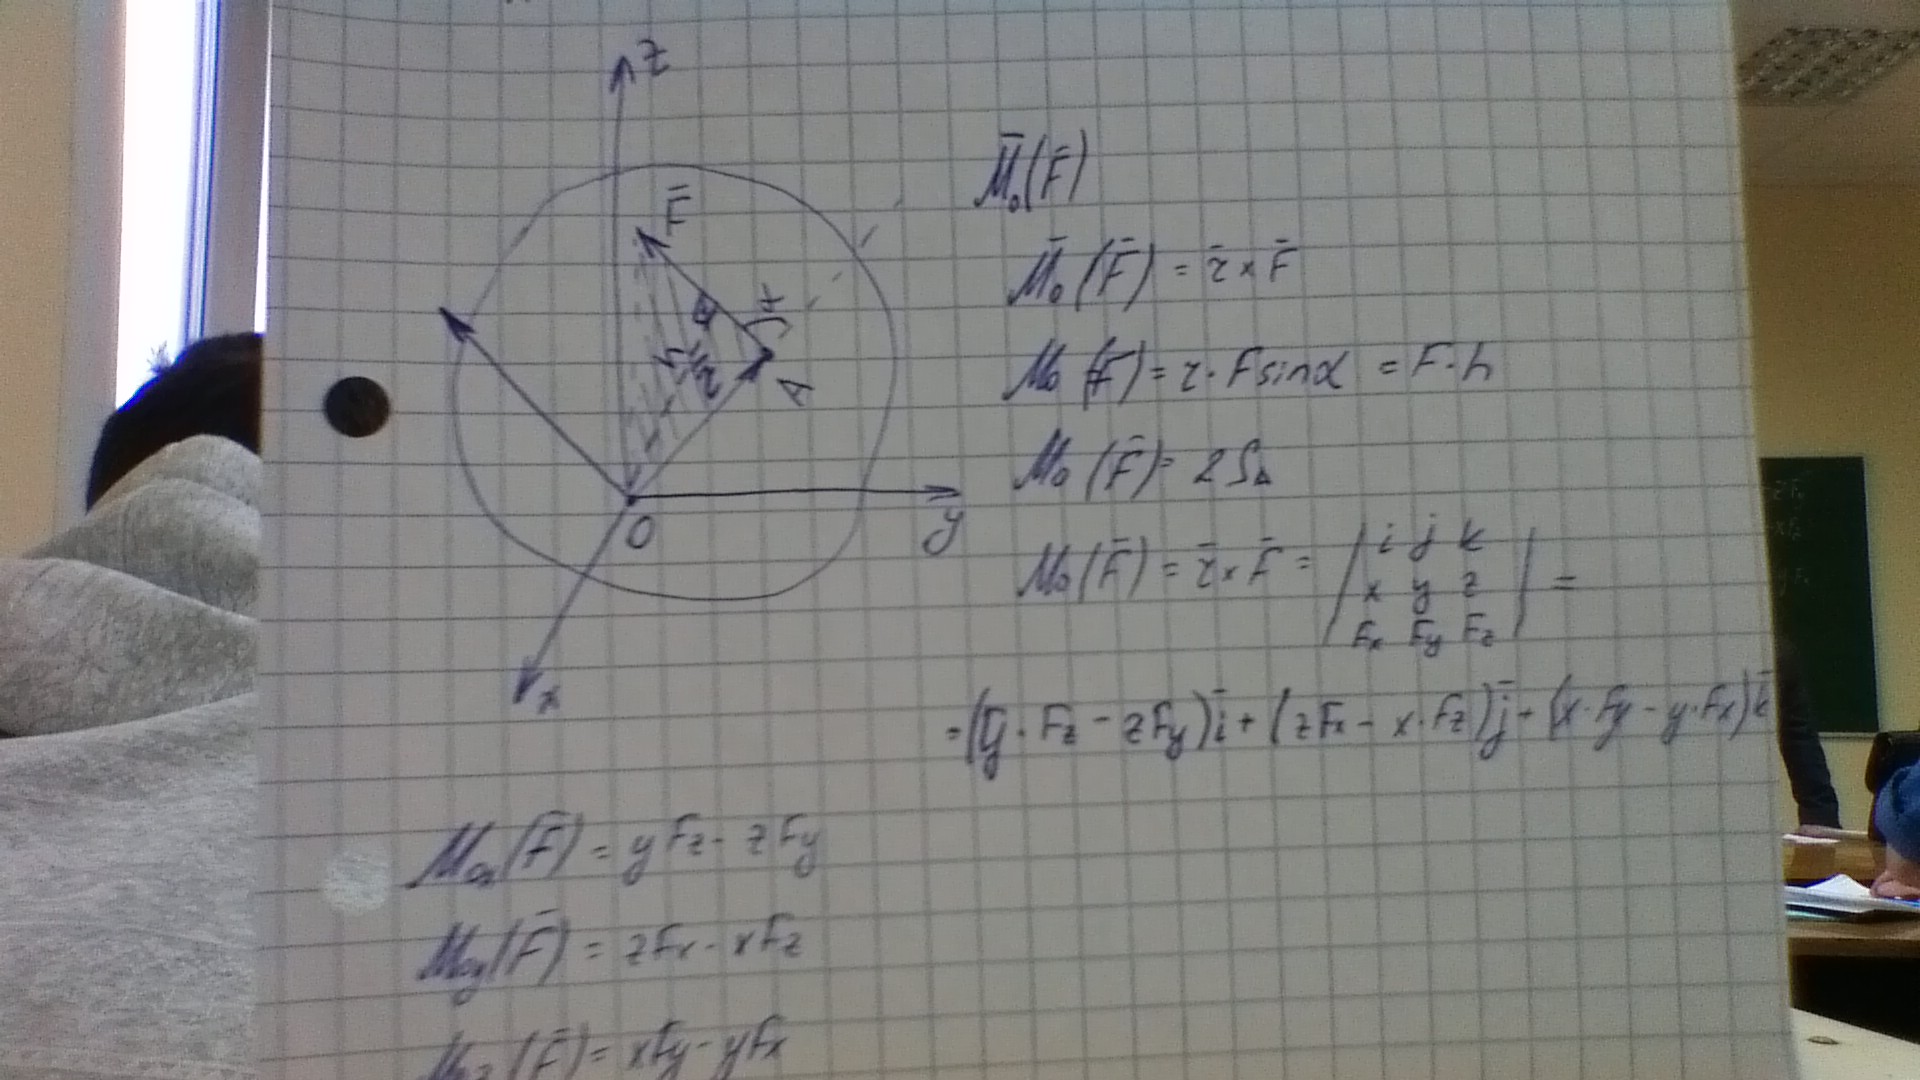 z
F̄
α
h
r̄
A
O
y
x
M̄₀(F̄)
M̄₀(F̄) = r̄ × F̄
M₀(F̄) = r · F sinα = F · h
M₀(F̄) = 2S△
M₀(F̄) = r̄ × F̄ = | i j k
x y z
Fx Fy Fz | =
= (y · Fz - zFy)ī + (zFx - x · Fz)j̄ + (x · Fy - y · Fx)k̄
M₀x(F̄) = yFz - zFy
M₀y(F̄) = zFx - xFz
M₀z(F̄) = xFy - yFx